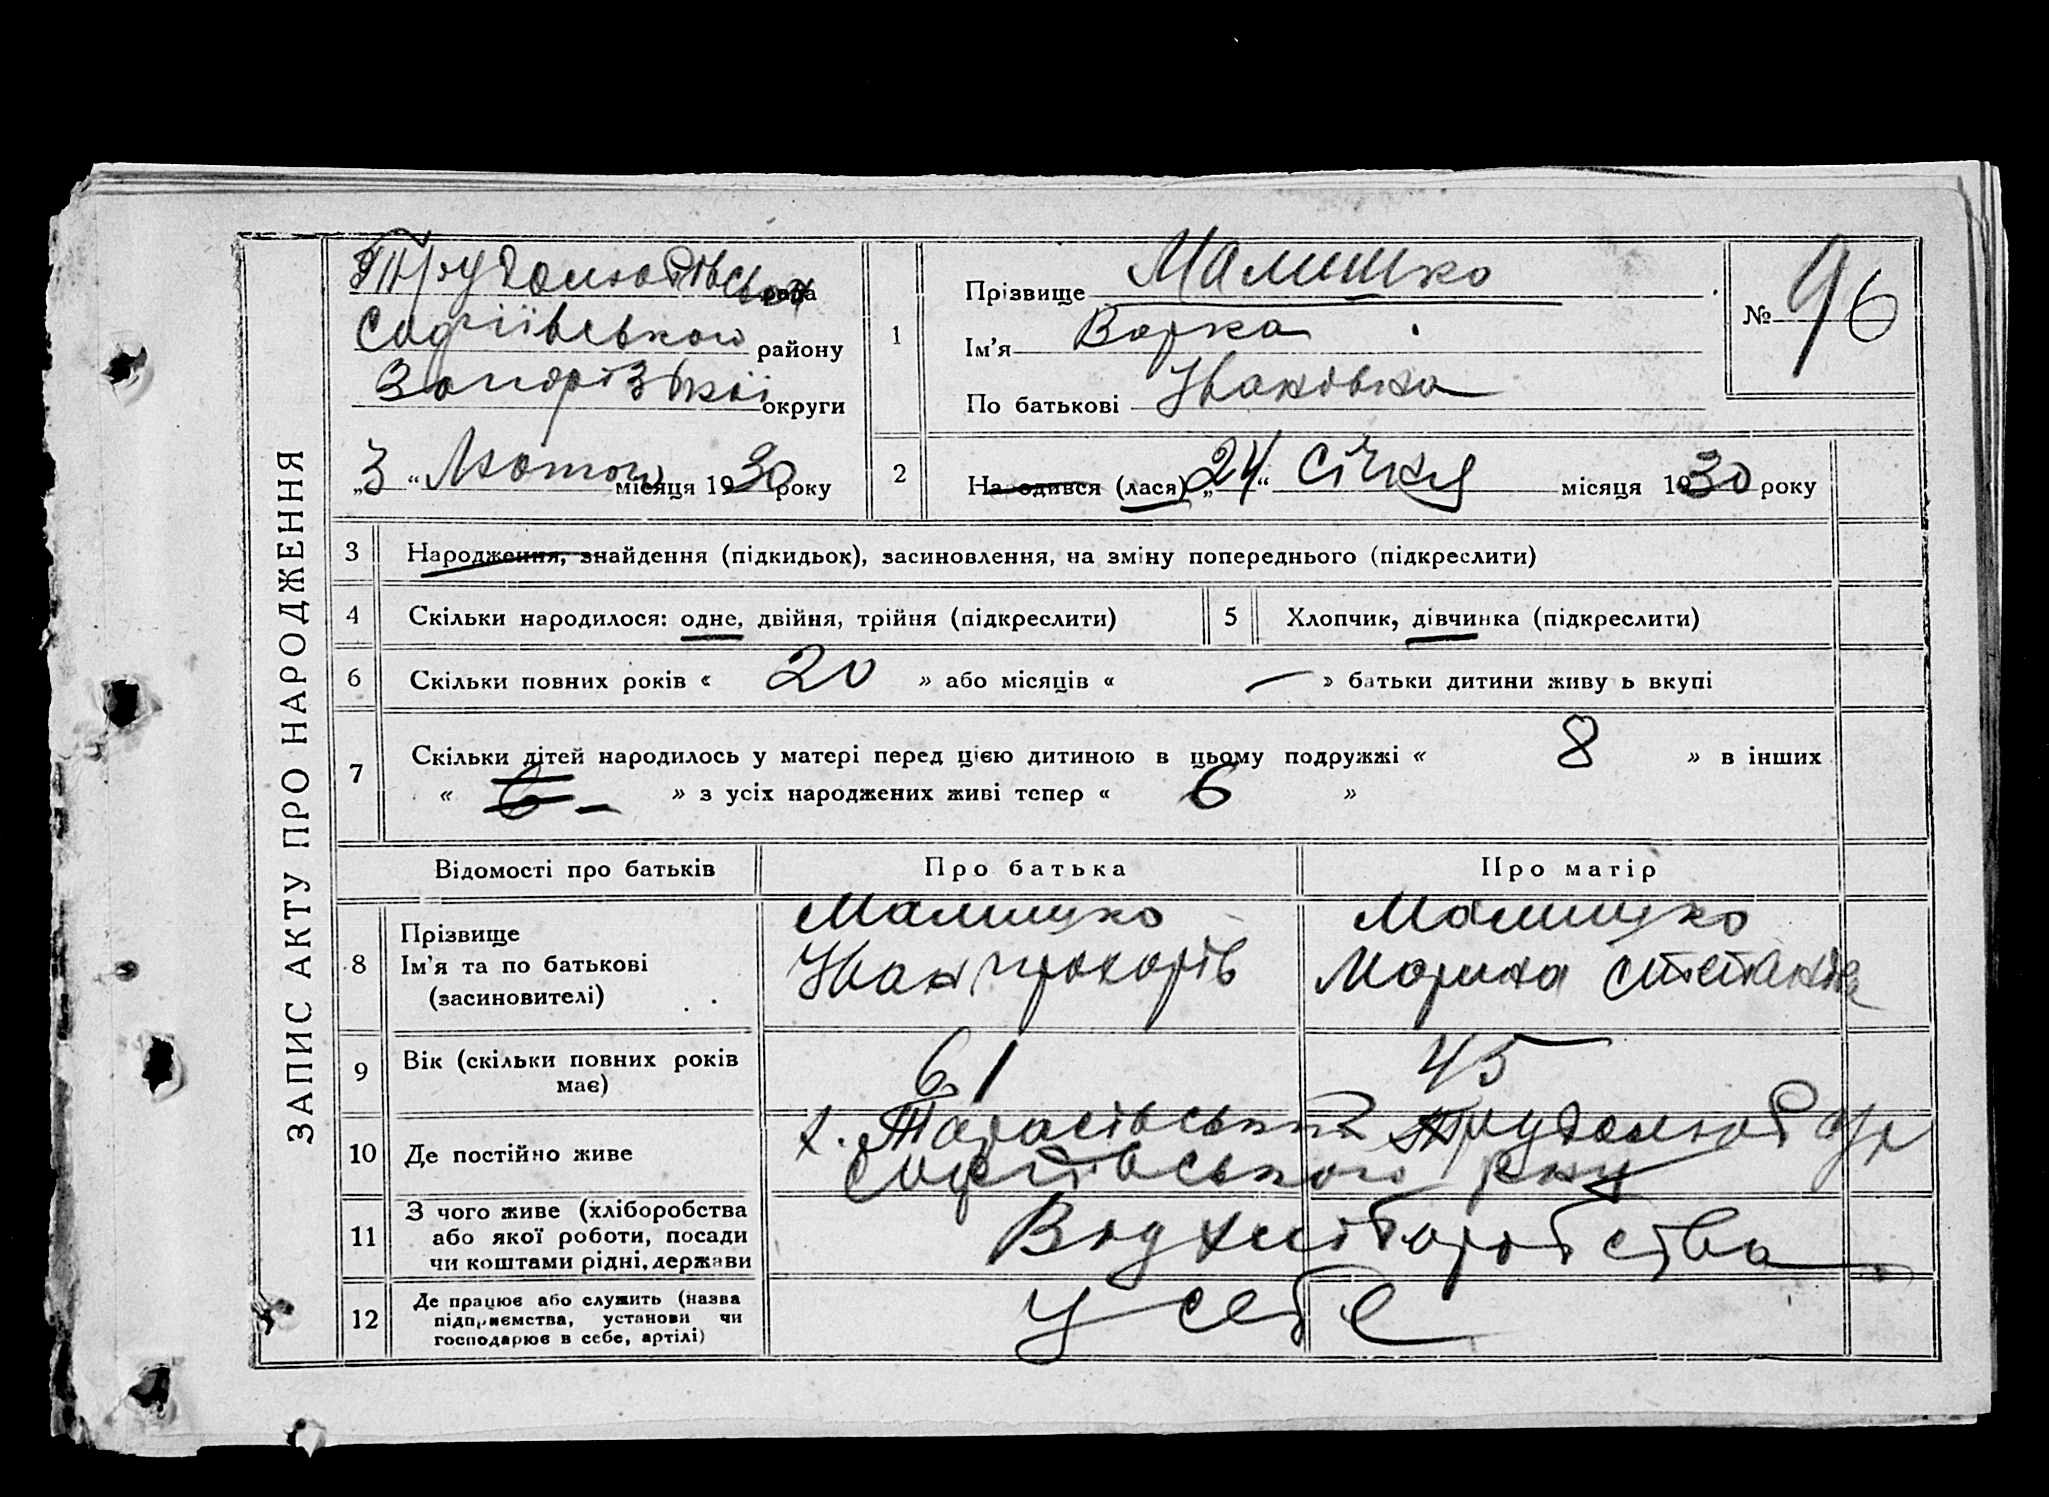 ЗАПИС АКТУ ПРО НАРОДЖЕННЯ
Трудолюбівська рада
Софіївського району
Запорізької округи
„3“ Лютого місяця 1930 року
1
Прізвище Малишко
Ім'я Варка
По батькові Иванівна
№ 96
2
Народився (лася) „24“ Січня місяця 1930 року
3 Народження, знайдення (підкидьок), засиновлення, на зміну попереднього (підкреслити)
4 Скільки народилося: одне, двійня, трійня (підкреслити) 5 Хлопчик, дівчинка (підкреслити)
6 Скільки повних років « 20 » або місяців « — » батьки дитини живу ь вкупі
7 Скільки дітей народилось у матері перед цією дитиною в цьому подружжі « 8 » в інших
« 6 – » з усіх народжених живі тепер « 6 »
Відомості про батьків Про батька Про матір
8 Прізвище Ім'я та по батькові (засиновителі)
Малишко Малишко
Иван Прохорів Марина Степанів
9 Вік (скільки повних років має) 61 45
10 Де постійно живе х. Тарасівський Трудолюб с/р
Софіївського р-ну
11 З чого живе (хліборобства або якої роботи, посади чи коштами рідні, держави
Від хліборобства
12 Де працює або служить (назва підприємства, установи чи господарює в себе, артілі)
У себе